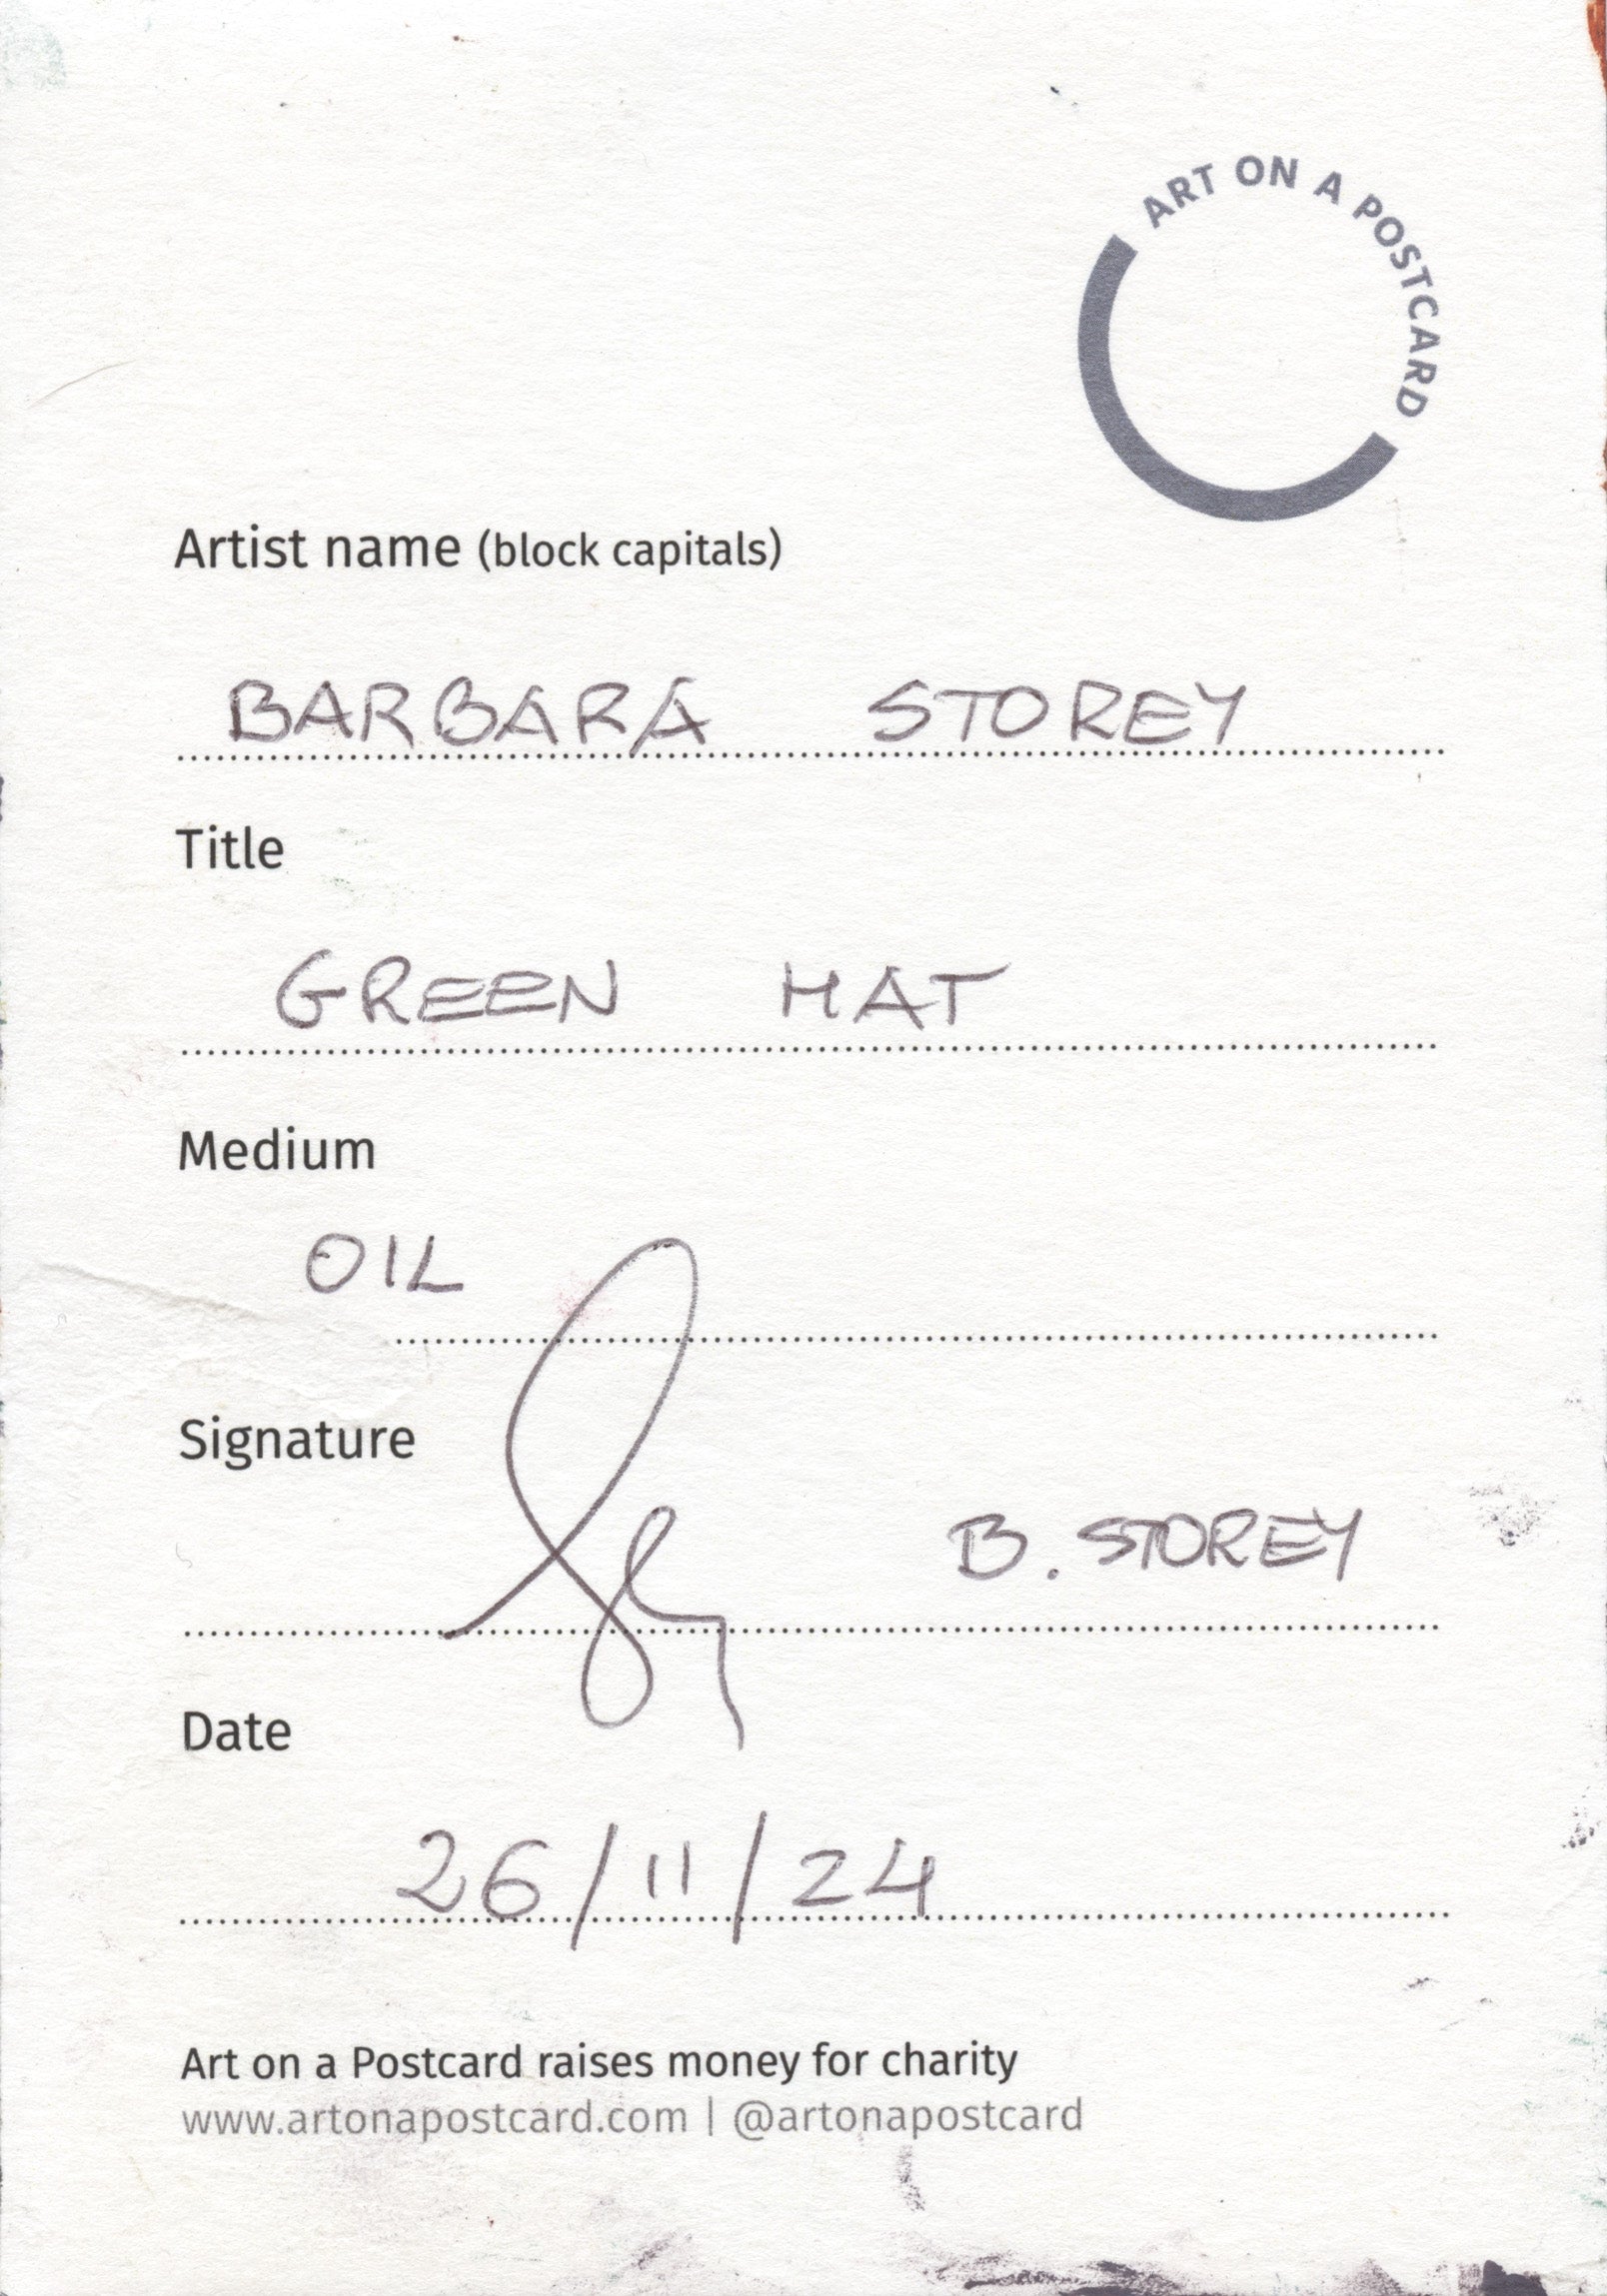 ART ON A POSTCARD
Artist name (block capitals)
BARBARA STOREY
Title
GREEN HAT
Medium
OIL
Signature
B. STOREY
Date
26/11/24
Art on a Postcard raises money for charity
www.artonapostcard.com | @artonapostcard